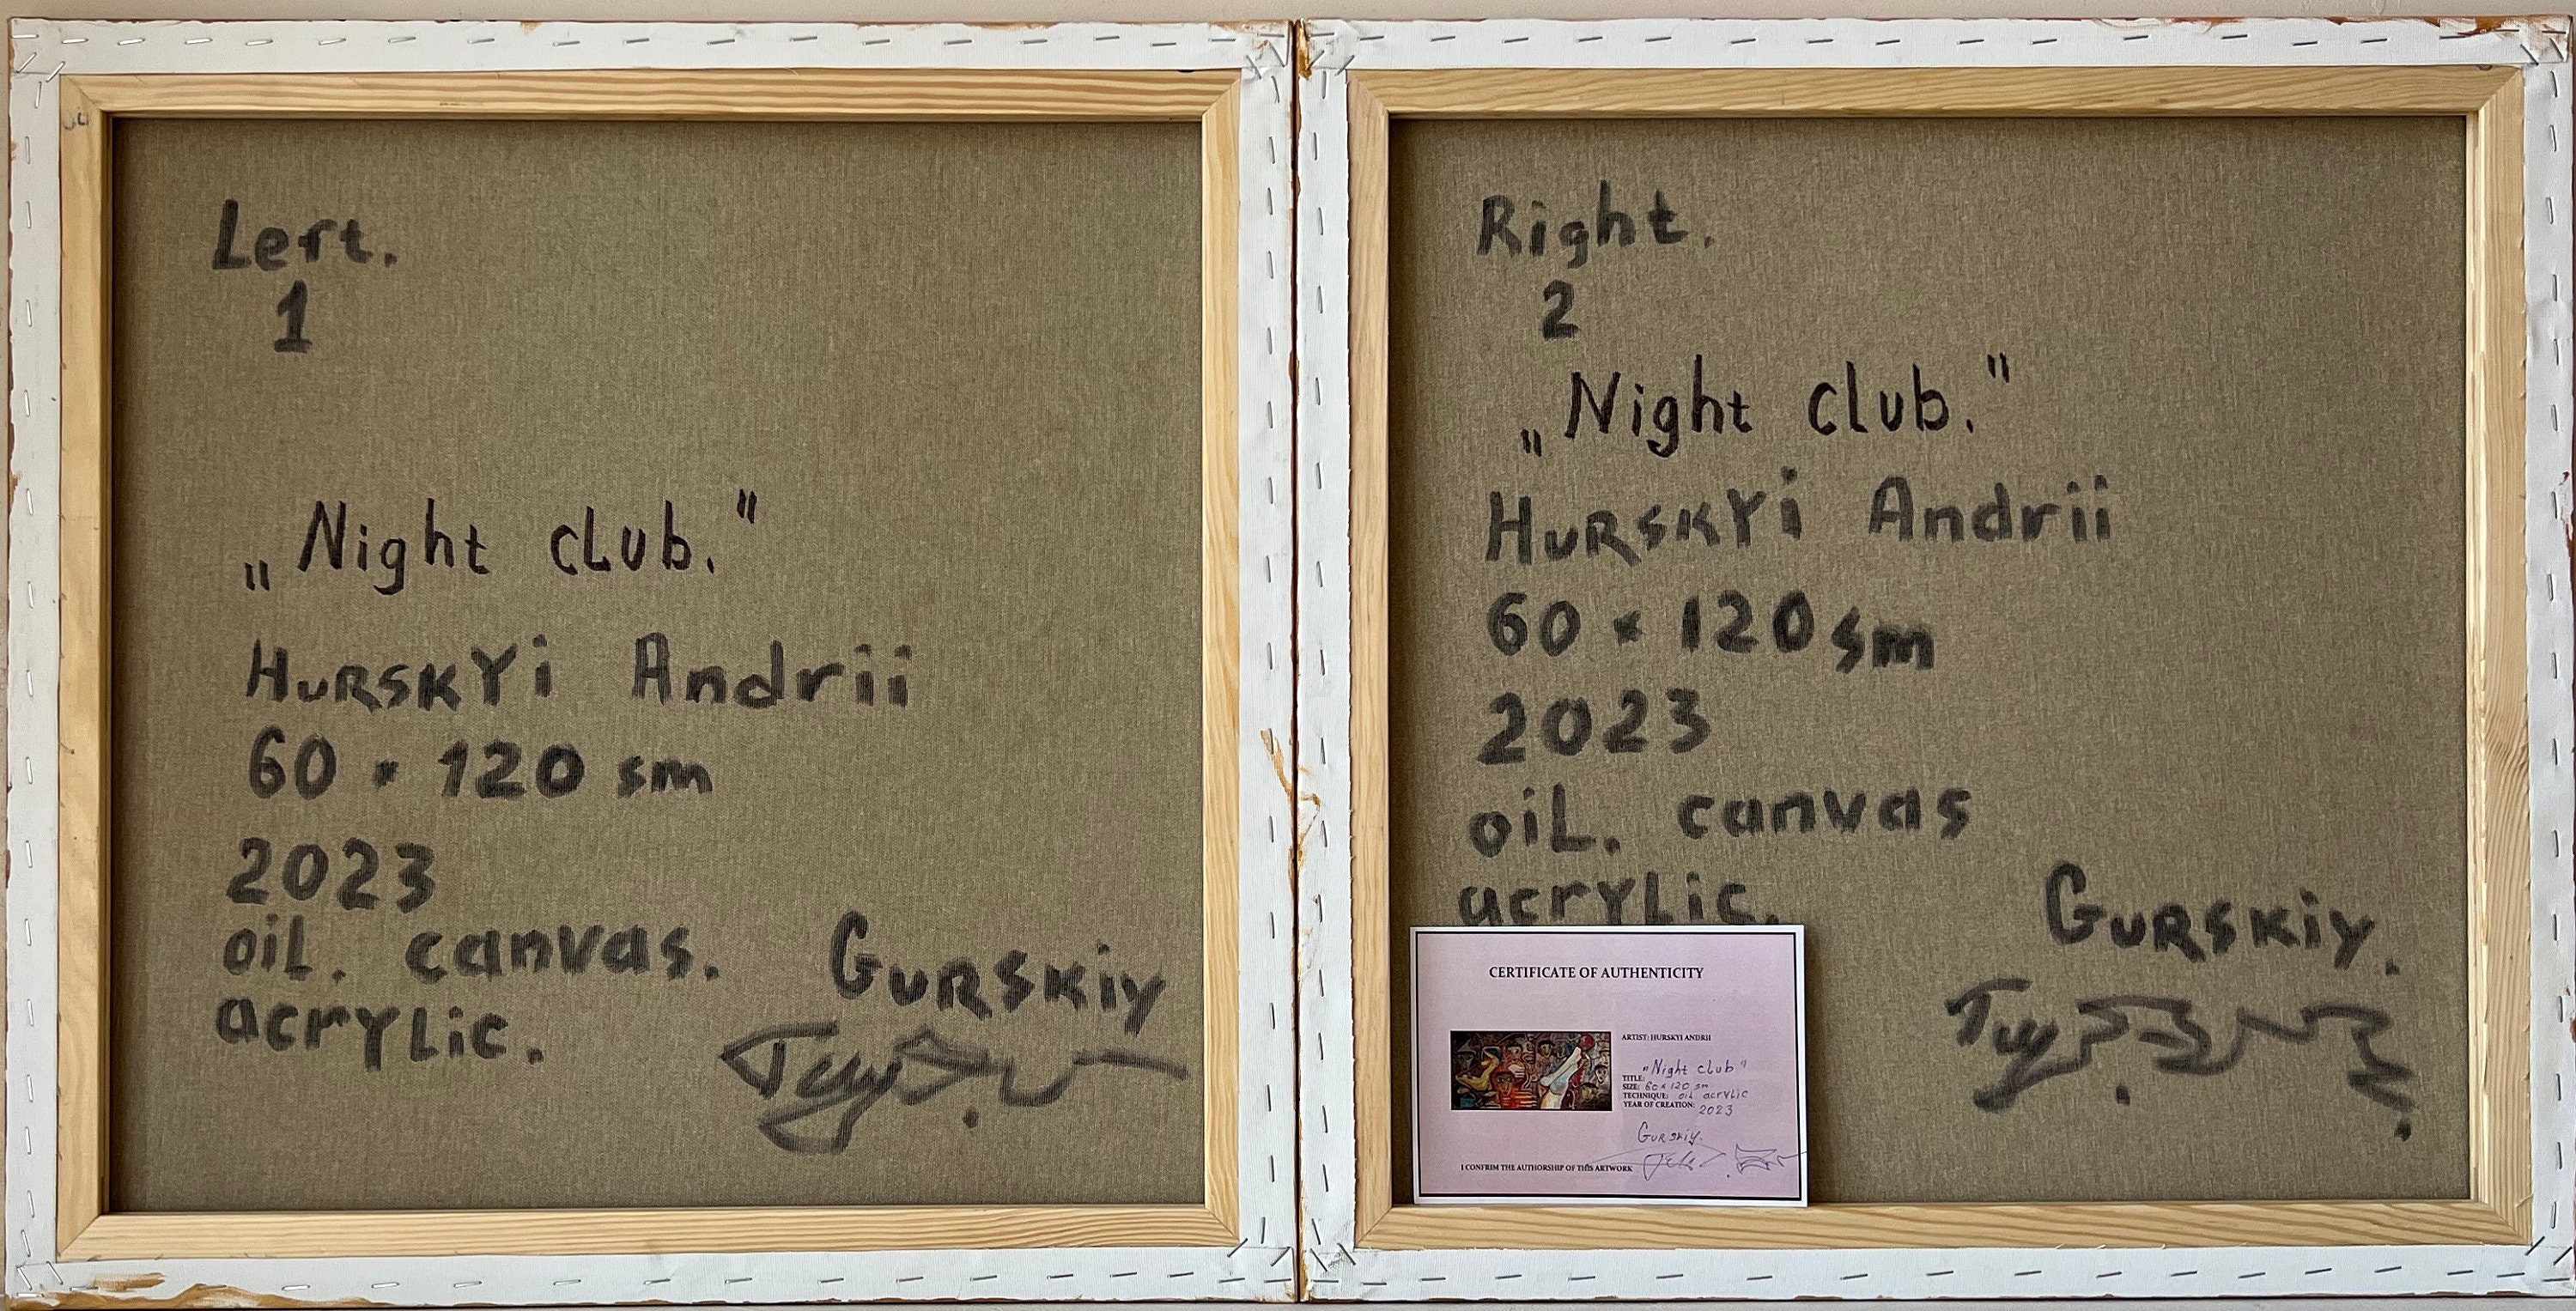 Left.
1
„Night club."
HURSKYi Andrii
60 × 120 sm
2023
oil. canvas.
acrylic.
GURSKiY
Right.
2
„Night club."
HURSKYi Andrii
60 × 120 sm
2023
oil. canvas
acrylic.
GURSKiY.
CERTIFICATE OF AUTHENTICITY
ARTIST: HURSKYI ANDRII
TITLE: "Night club"
SIZE: 60 x 120 sm
TECHNIQUE: oil acrylic
YEAR OF CREATION: 2023
GURSKiY.
I CONFRIM THE AUTHORSHIP OF THIS ARTWORK